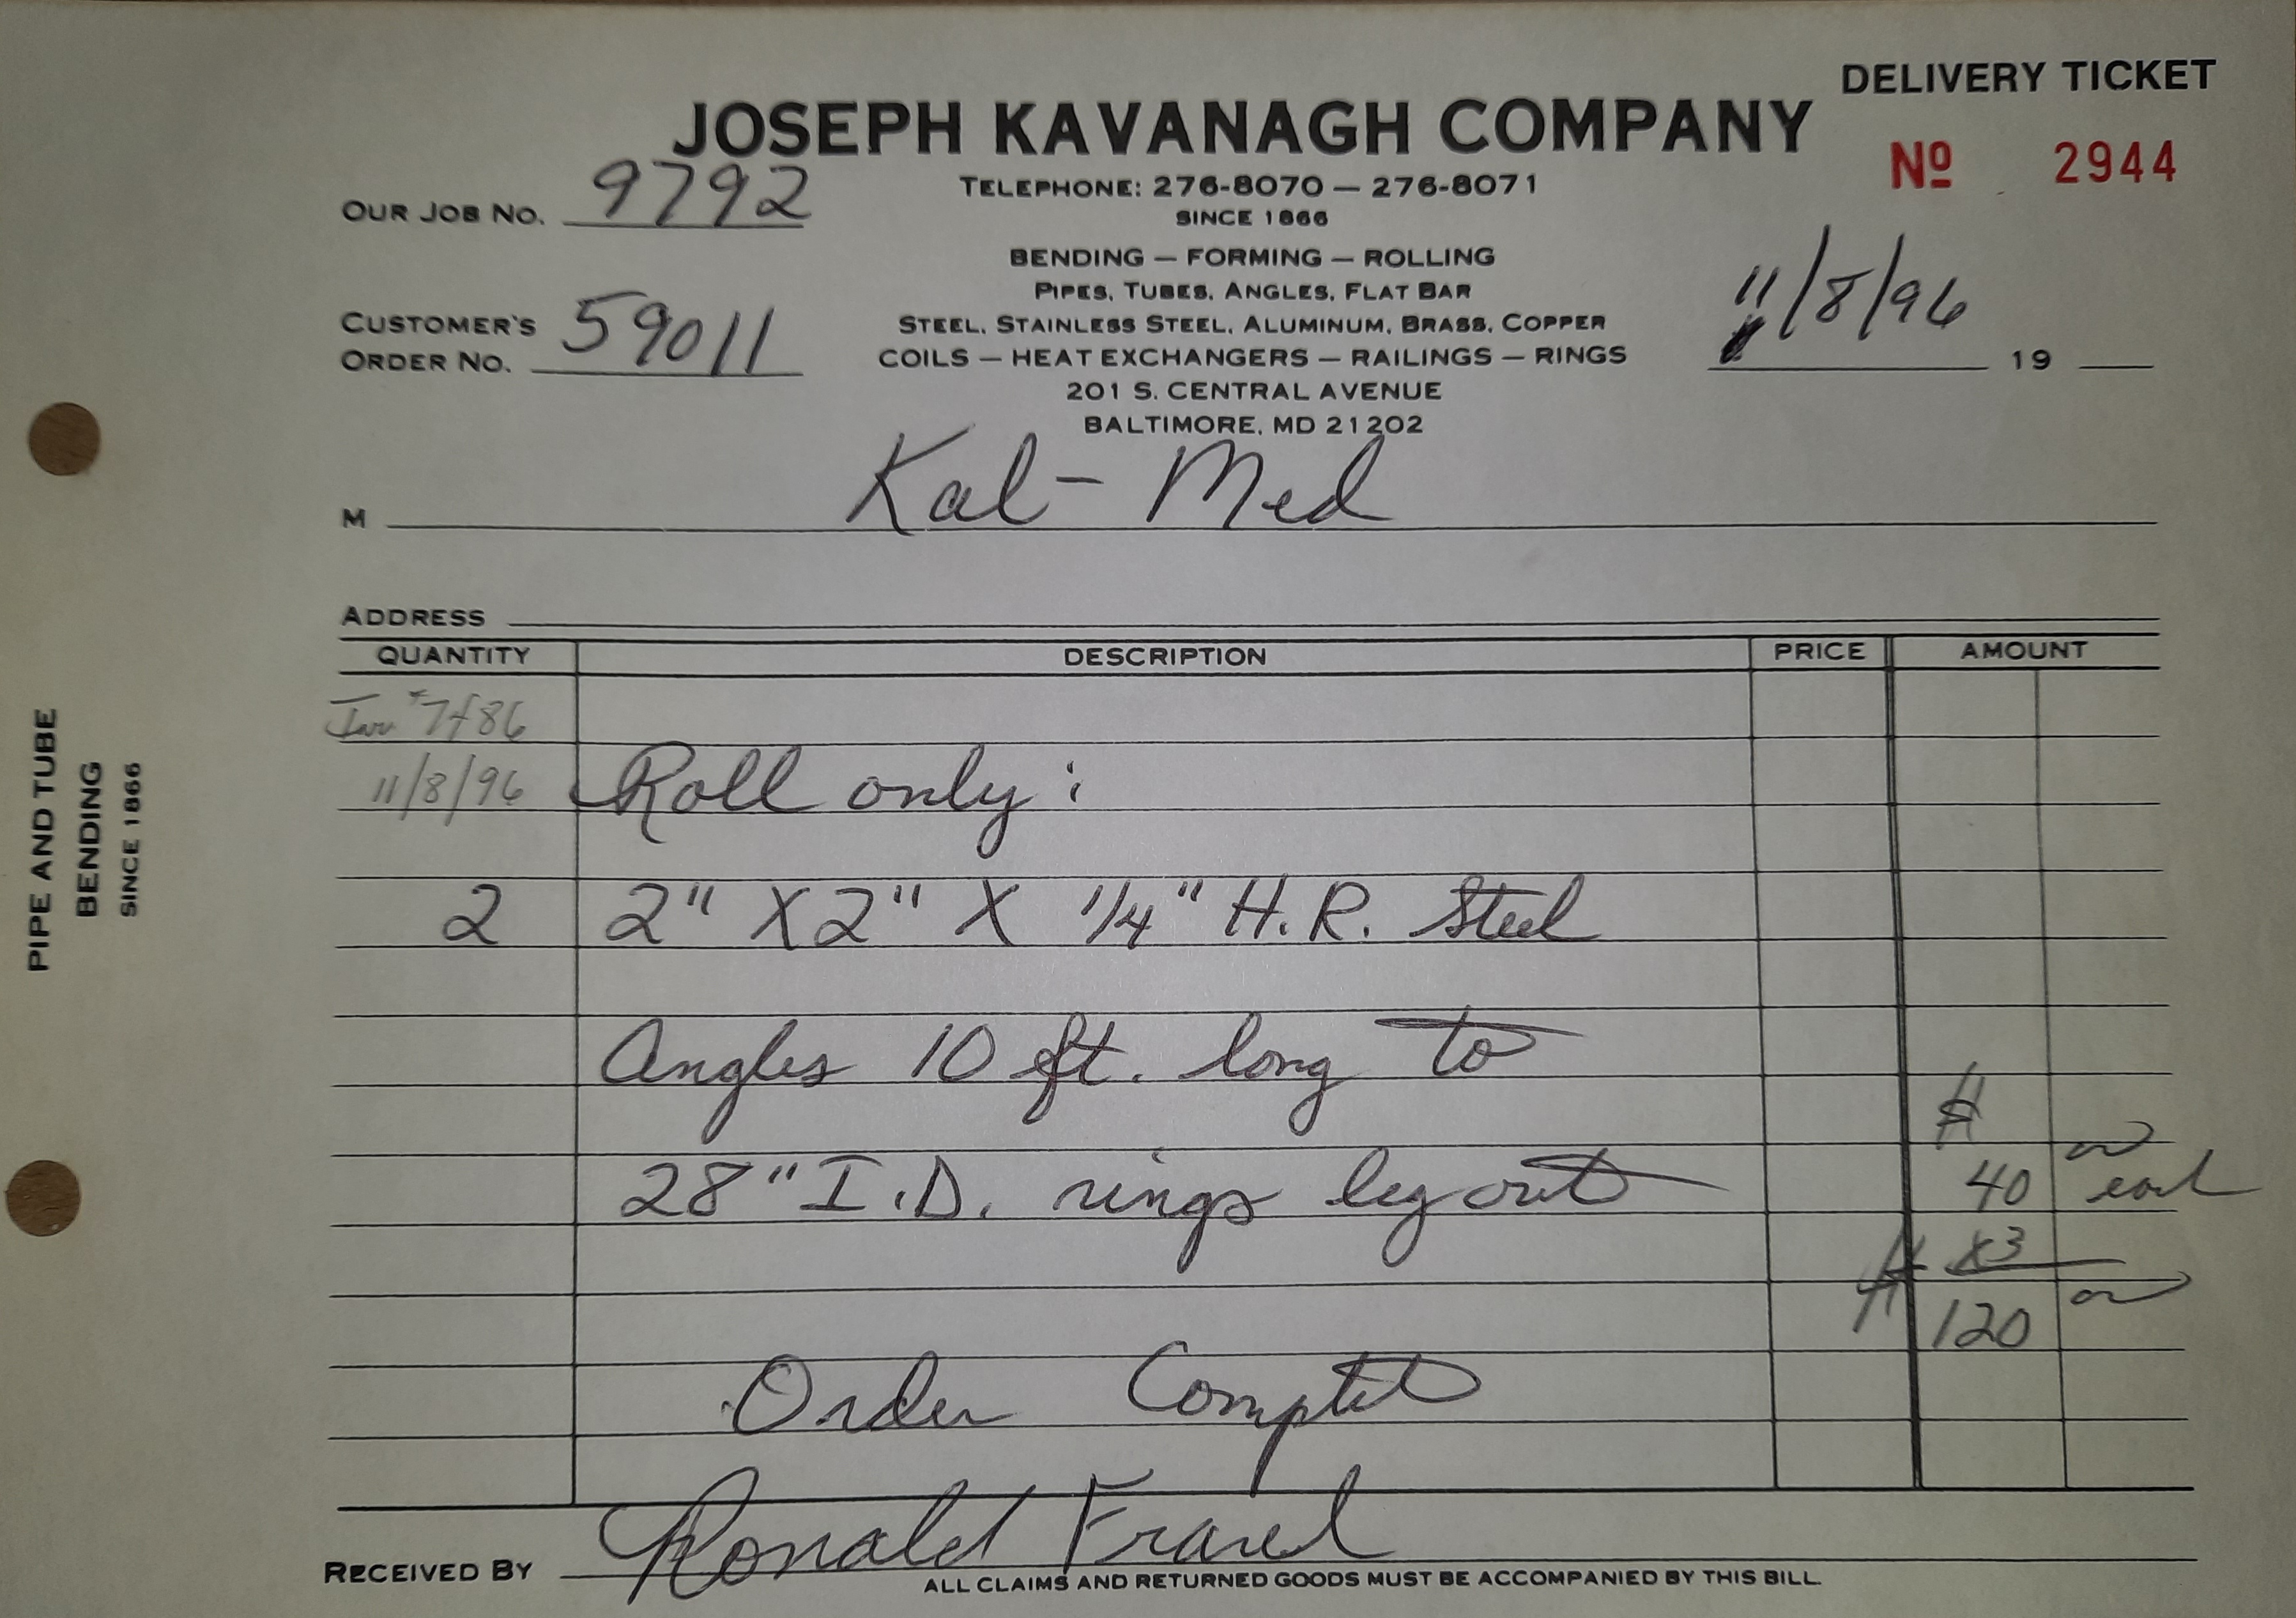 DELIVERY TICKET
JOSEPH KAVANAGH COMPANY
Nº 2944
OUR JOB NO. 9792
TELEPHONE: 276-8070 — 276-8071
SINCE 1866
BENDING — FORMING — ROLLING
PIPES, TUBES, ANGLES, FLAT BAR
CUSTOMER'S ORDER NO. 59011
STEEL, STAINLESS STEEL, ALUMINUM, BRASS, COPPER
11/8/96 19
COILS — HEAT EXCHANGERS — RAILINGS — RINGS
201 S. CENTRAL AVENUE
BALTIMORE, MD 21202
M Kal-Med
ADDRESS
QUANTITY DESCRIPTION PRICE AMOUNT
Inv #7486
11/8/96 Roll only:
2 2" X 2" X 1/4" H.R. Steel
Angles 10 ft. long to
$
28" I.D. rings leg out 40 each
x3
$ 120
Order Complete
RECEIVED BY Ronald
ALL CLAIMS AND RETURNED GOODS MUST BE ACCOMPANIED BY THIS BILL.
PIPE AND TUBE
BENDING
SINCE 1866